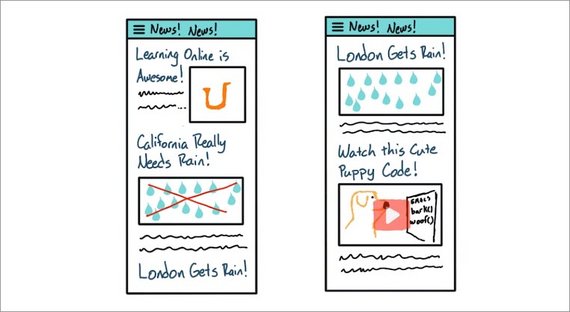 News! News!
Learning Online is
Awesome!
California Really
Needs Rain!
London Gets Rain!
News! News!
London Gets Rain!
Watch this Cute
Puppy Code!
bark()
woof()